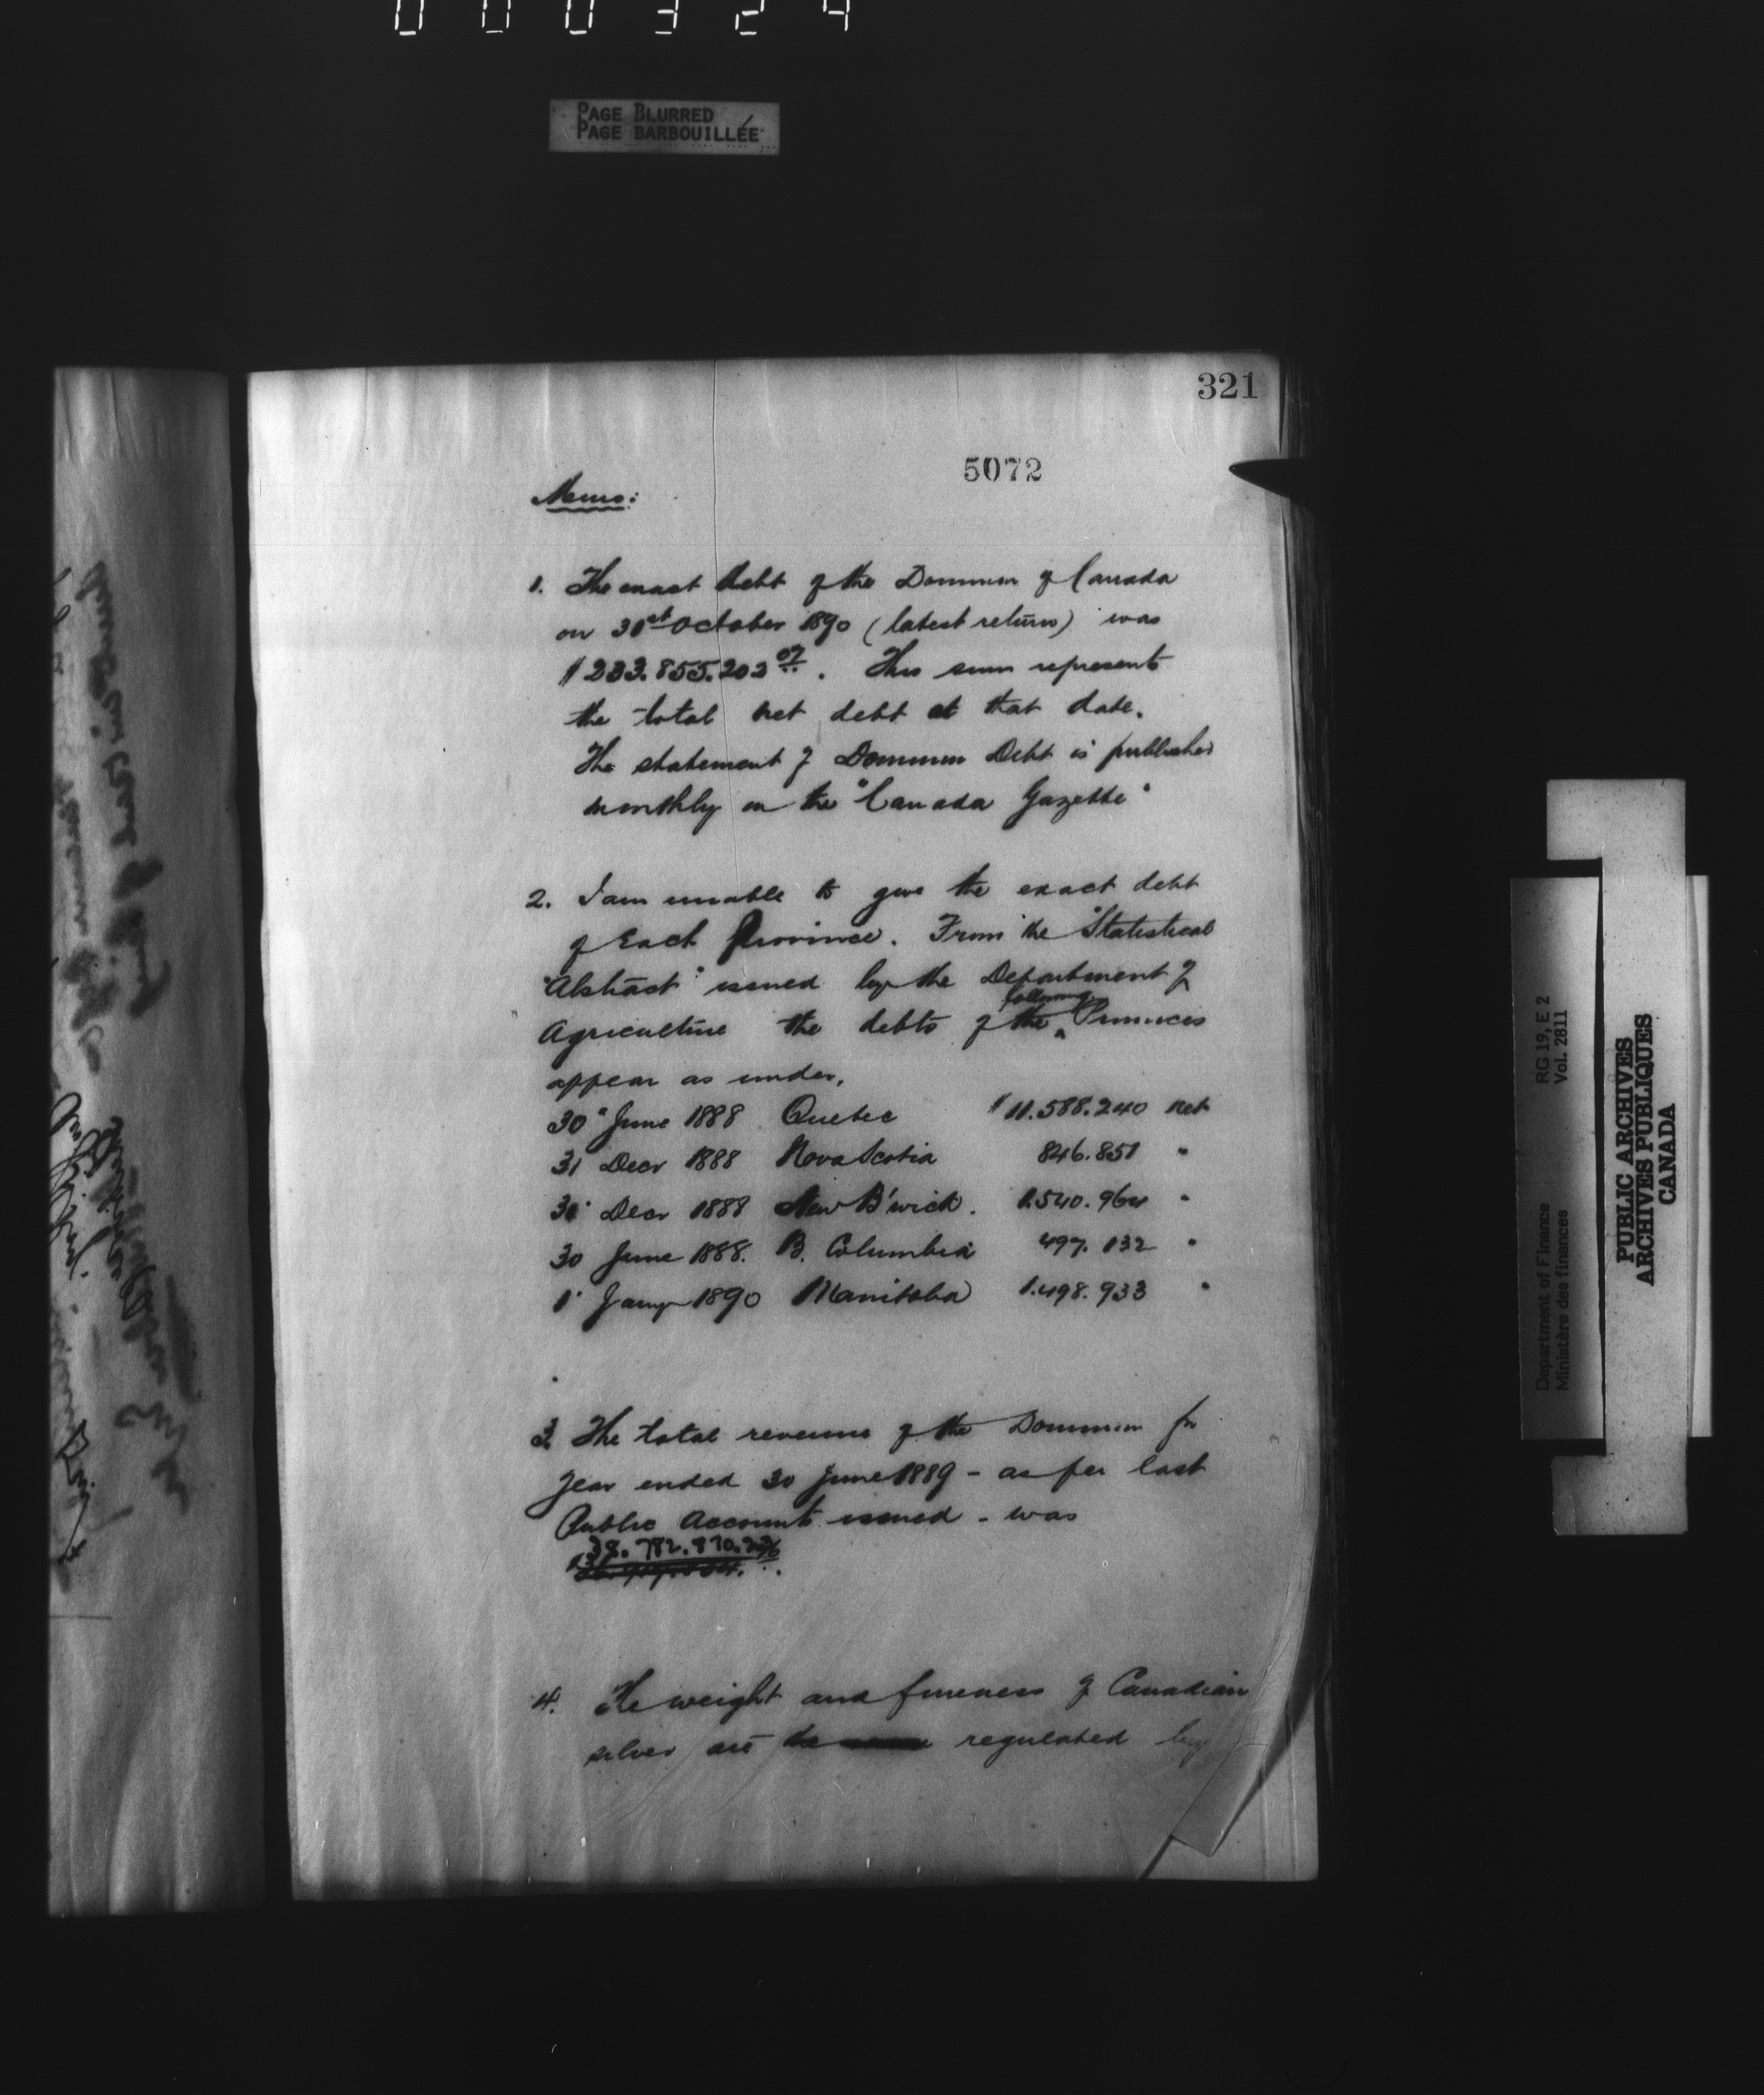 000324
PAGE BLURRED
PAGE BARBOUILLÉE
321
5072
Memo:
1. The exact debt of the Dominion of Canada
on 31st October 1890 (latest return) was
$233.855.202 07. This sum represents
the total net debt at that date.
The statement of Dominion Debt is published
monthly in the "Canada Gazette"
2. I am unable to give the exact debt
of Each Province. From the "Statistical
"Abstract" issued by the Department of
Agriculture the debts of the following Provinces
appear as under,
30" June 1888 Quebec $11.588.240 net
31 Decr 1888 Nova Scotia 846.851 "
31 Decr 1888 New B'wick. 1.540.964 "
30 June 1888. B. Columbia 497.132 "
1' Jany 1890 Manitoba 1.498.933 "
3. The total revenue of the Dominion for
year ended 30 June 1889 - as per last
Public Accounts issued - was
38.782.870.23
4. The weight and fineness of Canadian
silver are regulated by
RG 19, E 2
Vol. 2811
Department of Finance
Ministère des finances
PUBLIC ARCHIVES
ARCHIVES PUBLIQUES
CANADA